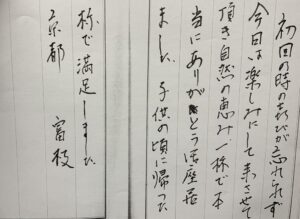 初回の時の喜びが忘れれず
今日は楽しみにして来させて
頂き自然の恵み一杯で本
当にありがとう店座居
ました 子供の頃に帰った
様で満足しました
京都 富枝